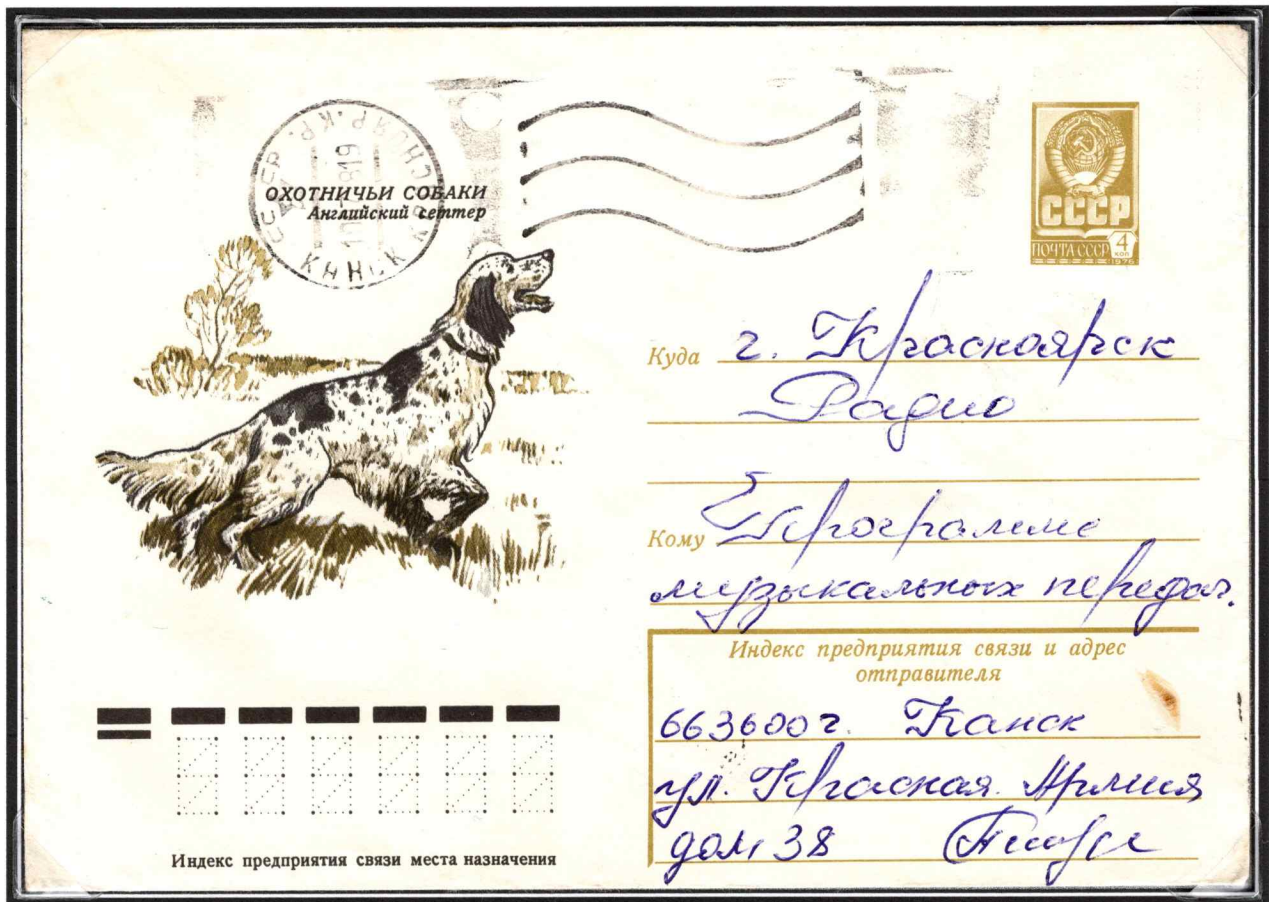 СССР
КАНСК КРАСНОЯР.КР.
ОХОТНИЧЬИ СОБАКИ
Английский сеттер
СССР
ПОЧТА СССР 4 КОП
1976
Куда г. Красноярск
Радио
Кому Программе
музыкальных передач.
Индекс предприятия связи и адрес
отправителя
663600 г. Канск
ул. Красная Армия
дом 38
Индекс предприятия связи места назначения